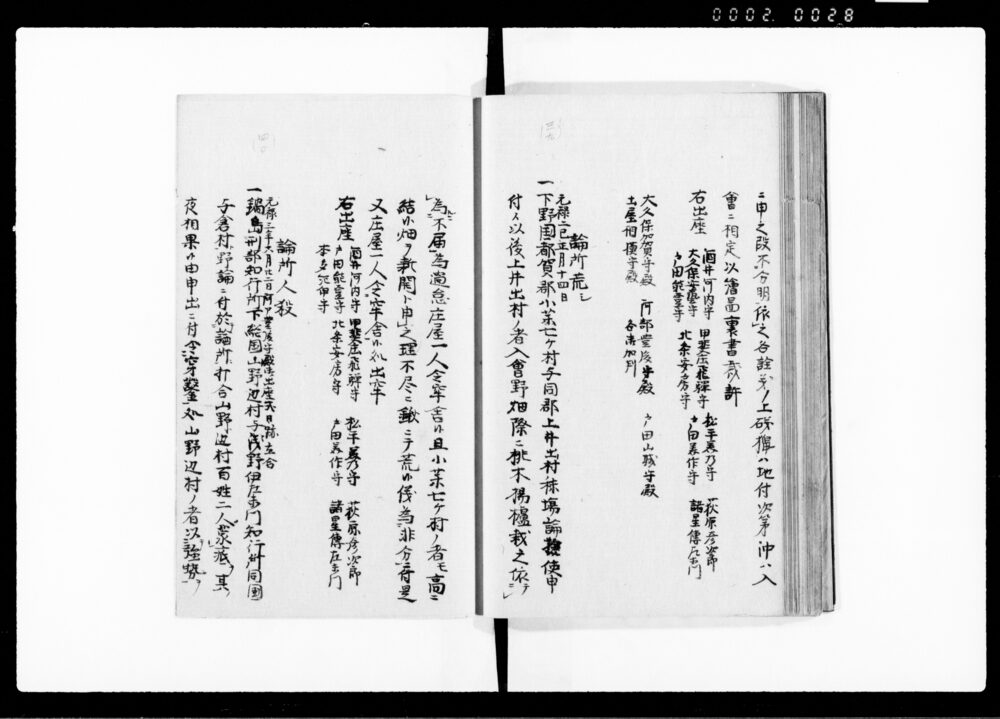 0002. 0028
(三九)
ニ申之段不分明依之各詮義ノ上磯猟ハ地付次第沖ハ入
會ニ相定以繪圖裏書裁許
右出座
酒井河内守 甲斐庄飛騨守 松平美乃守 荻原彦次郎
大久保安藝守
戸田能登守 北条安房守 戸田美作守 諸星傳左衛門
大久保加賀守殿 阿部豊後守殿 戸田山城守殿
土屋相模守殿 各御加判
論所荒シ
元禄二巳正月十四日
一下野国都賀郡小茱七ヶ村与同郡上井出村秣場論検使申
付ル以後上井出村ノ者入會野畑際ニ桃木楊櫨栽之依テ
(四〇)
為不届為過怠庄屋一人令牢舎ル且小茱七ヶ村ノ者モ高ニ
結ル畑ヲ新開ト申之理不尽ニ鍬ニテ荒ル儀為非分ニ付是
又庄屋一人令牢舎ル処出牢
右出座
酒井河内守 甲斐庄飛騨守 松平美乃守 荻原彦次郎
戸田能登守 北条安房守 戸田美作守 諸星傳左衛門
本多紀伊守
論所人殺
元禄二年六月廿二日阿部豊後守殿御出座天日跡立合
一鍋島刑部知行所下総国山野辺村与浅野伊左衛門知行所同国
与倉村野論ニ付於論所打合山野辺村百姓二人衆疵其
夜相果ル由申出ニ付令穿鑿処山野辺村ノ者以強勢